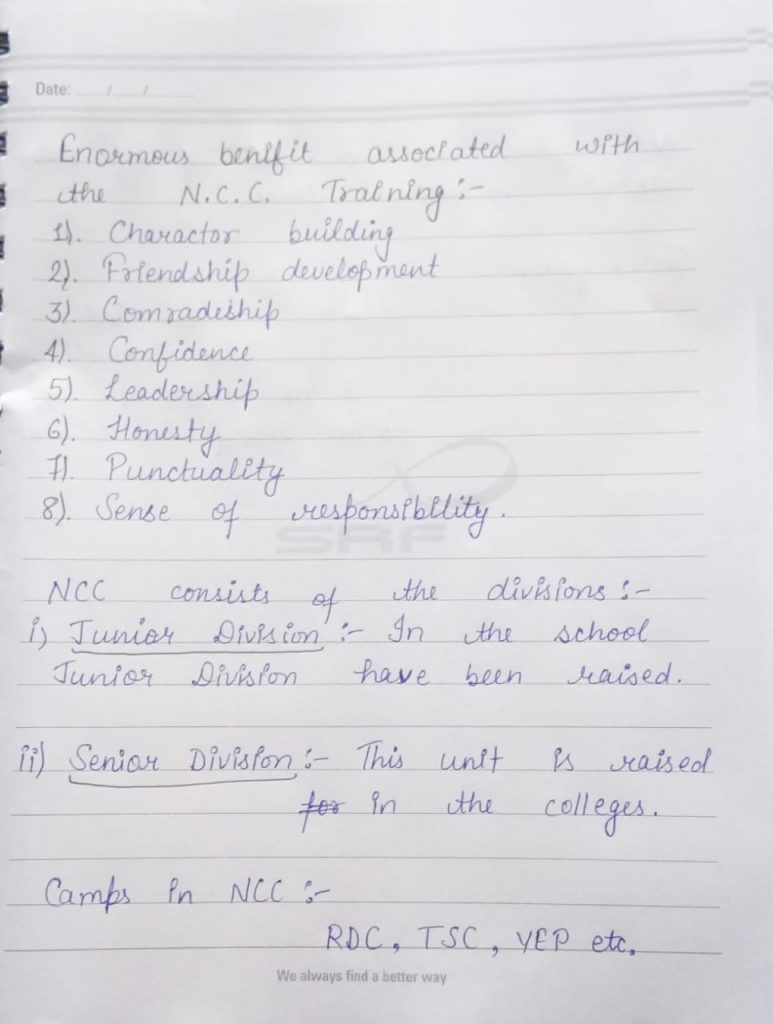 Date: / /
Enormous benifit associated with
the N.C.C. Training :-
1). Charactor building
2). Friendship development
3). Comradeship
4). Confidence
5). Leadership
6). Honesty
7). Punctuality
8). Sense of responsibility.
SRF
NCC consists of the divisions :-
i) Junior Division :- In the school
Junior Division have been raised.
ii) Senior Division :- This unit is raised
for in the colleges.
Camps in NCC :-
RDC, TSC, YEP etc.
We always find a better way